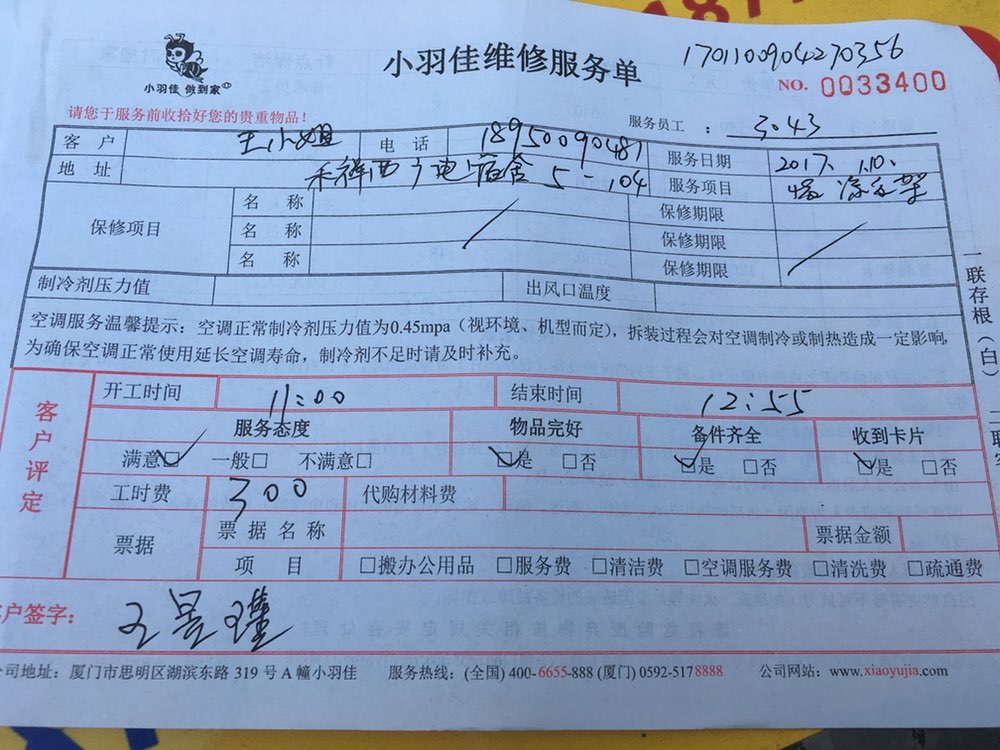 小羽佳 做到家
小羽佳维修服务单
1701100904270356
NO. 0033400
请您于服务前收拾好您的贵重物品！
服务员工 ： 3043
客 户 王小姐 电 话 18950090481 服务日期 2017.1.10.
地 址 禾祥西广电宿舍 5-104 服务项目 修 凉衣架
保修项目 名 称 保修期限
名 称 保修期限
名 称 保修期限
制冷剂压力值 出风口温度
空调服务温馨提示：空调正常制冷剂压力值为0.45mpa（视环境、机型而定），拆装过程会对空调制冷或制热造成一定影响，
为确保空调正常使用延长空调寿命，制冷剂不足时请及时补充。
一联存根（白）
客户评定
开工时间 11:00 结束时间 12:55
服务态度 物品完好 备件齐全 收到卡片
满意☑ 一般□ 不满意□ ☑是 □否 ☑是 □否 ☑是 □否
工时费 300 代购材料费
票据 票据名称 票据金额
项 目 □搬办公用品 □服务费 □清洁费 □空调服务费 □清洗费 □疏通费
客户签字： 王昱瑾
公司地址：厦门市思明区湖滨东路 319 号 A 幢小羽佳 服务热线：(全国) 400-6655-888 (厦门) 0592-5178888 公司网站：www.xiaoyujia.com